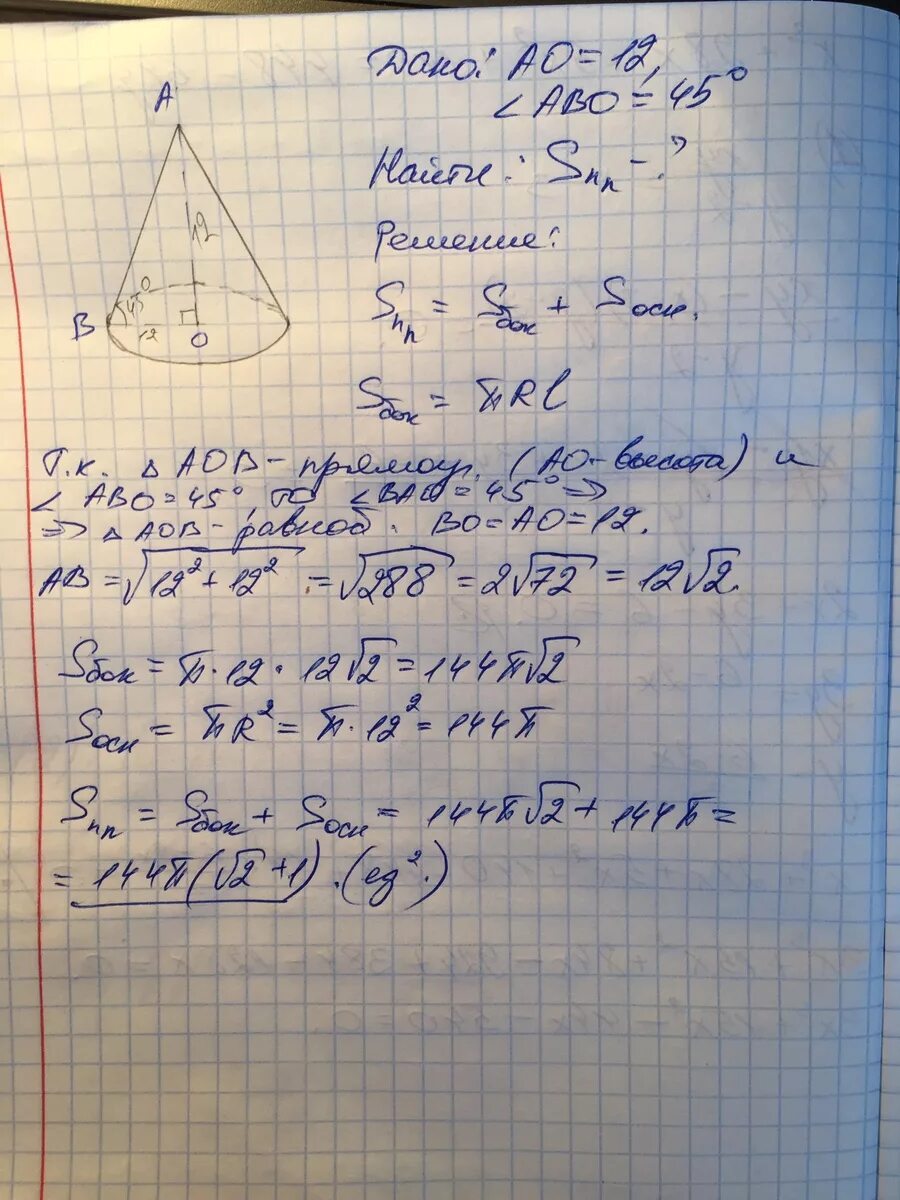 Дано: AO = 12,
∠ABO = 45°
Найти: Sпп - ?
Решение:
Sпп = Sбок + Sосн.
Sбок = πRl
A
12
45°
B
12
O
Т.к. △ AOB - прямоуг. (AO - высота) и
∠ ABO = 45°, то ∠BAO = 45° =>
=> △ AOB - равноб. BO = AO = 12.
AB = √(12² + 12²) = √288 = 2√72 = 12√2.
Sбок = π · 12 · 12√2 = 144π√2
Sосн = πR² = π · 12² = 144π
Sпп = Sбок + Sосн = 144π√2 + 144π =
= 144π(√2 + 1) . (ед².)